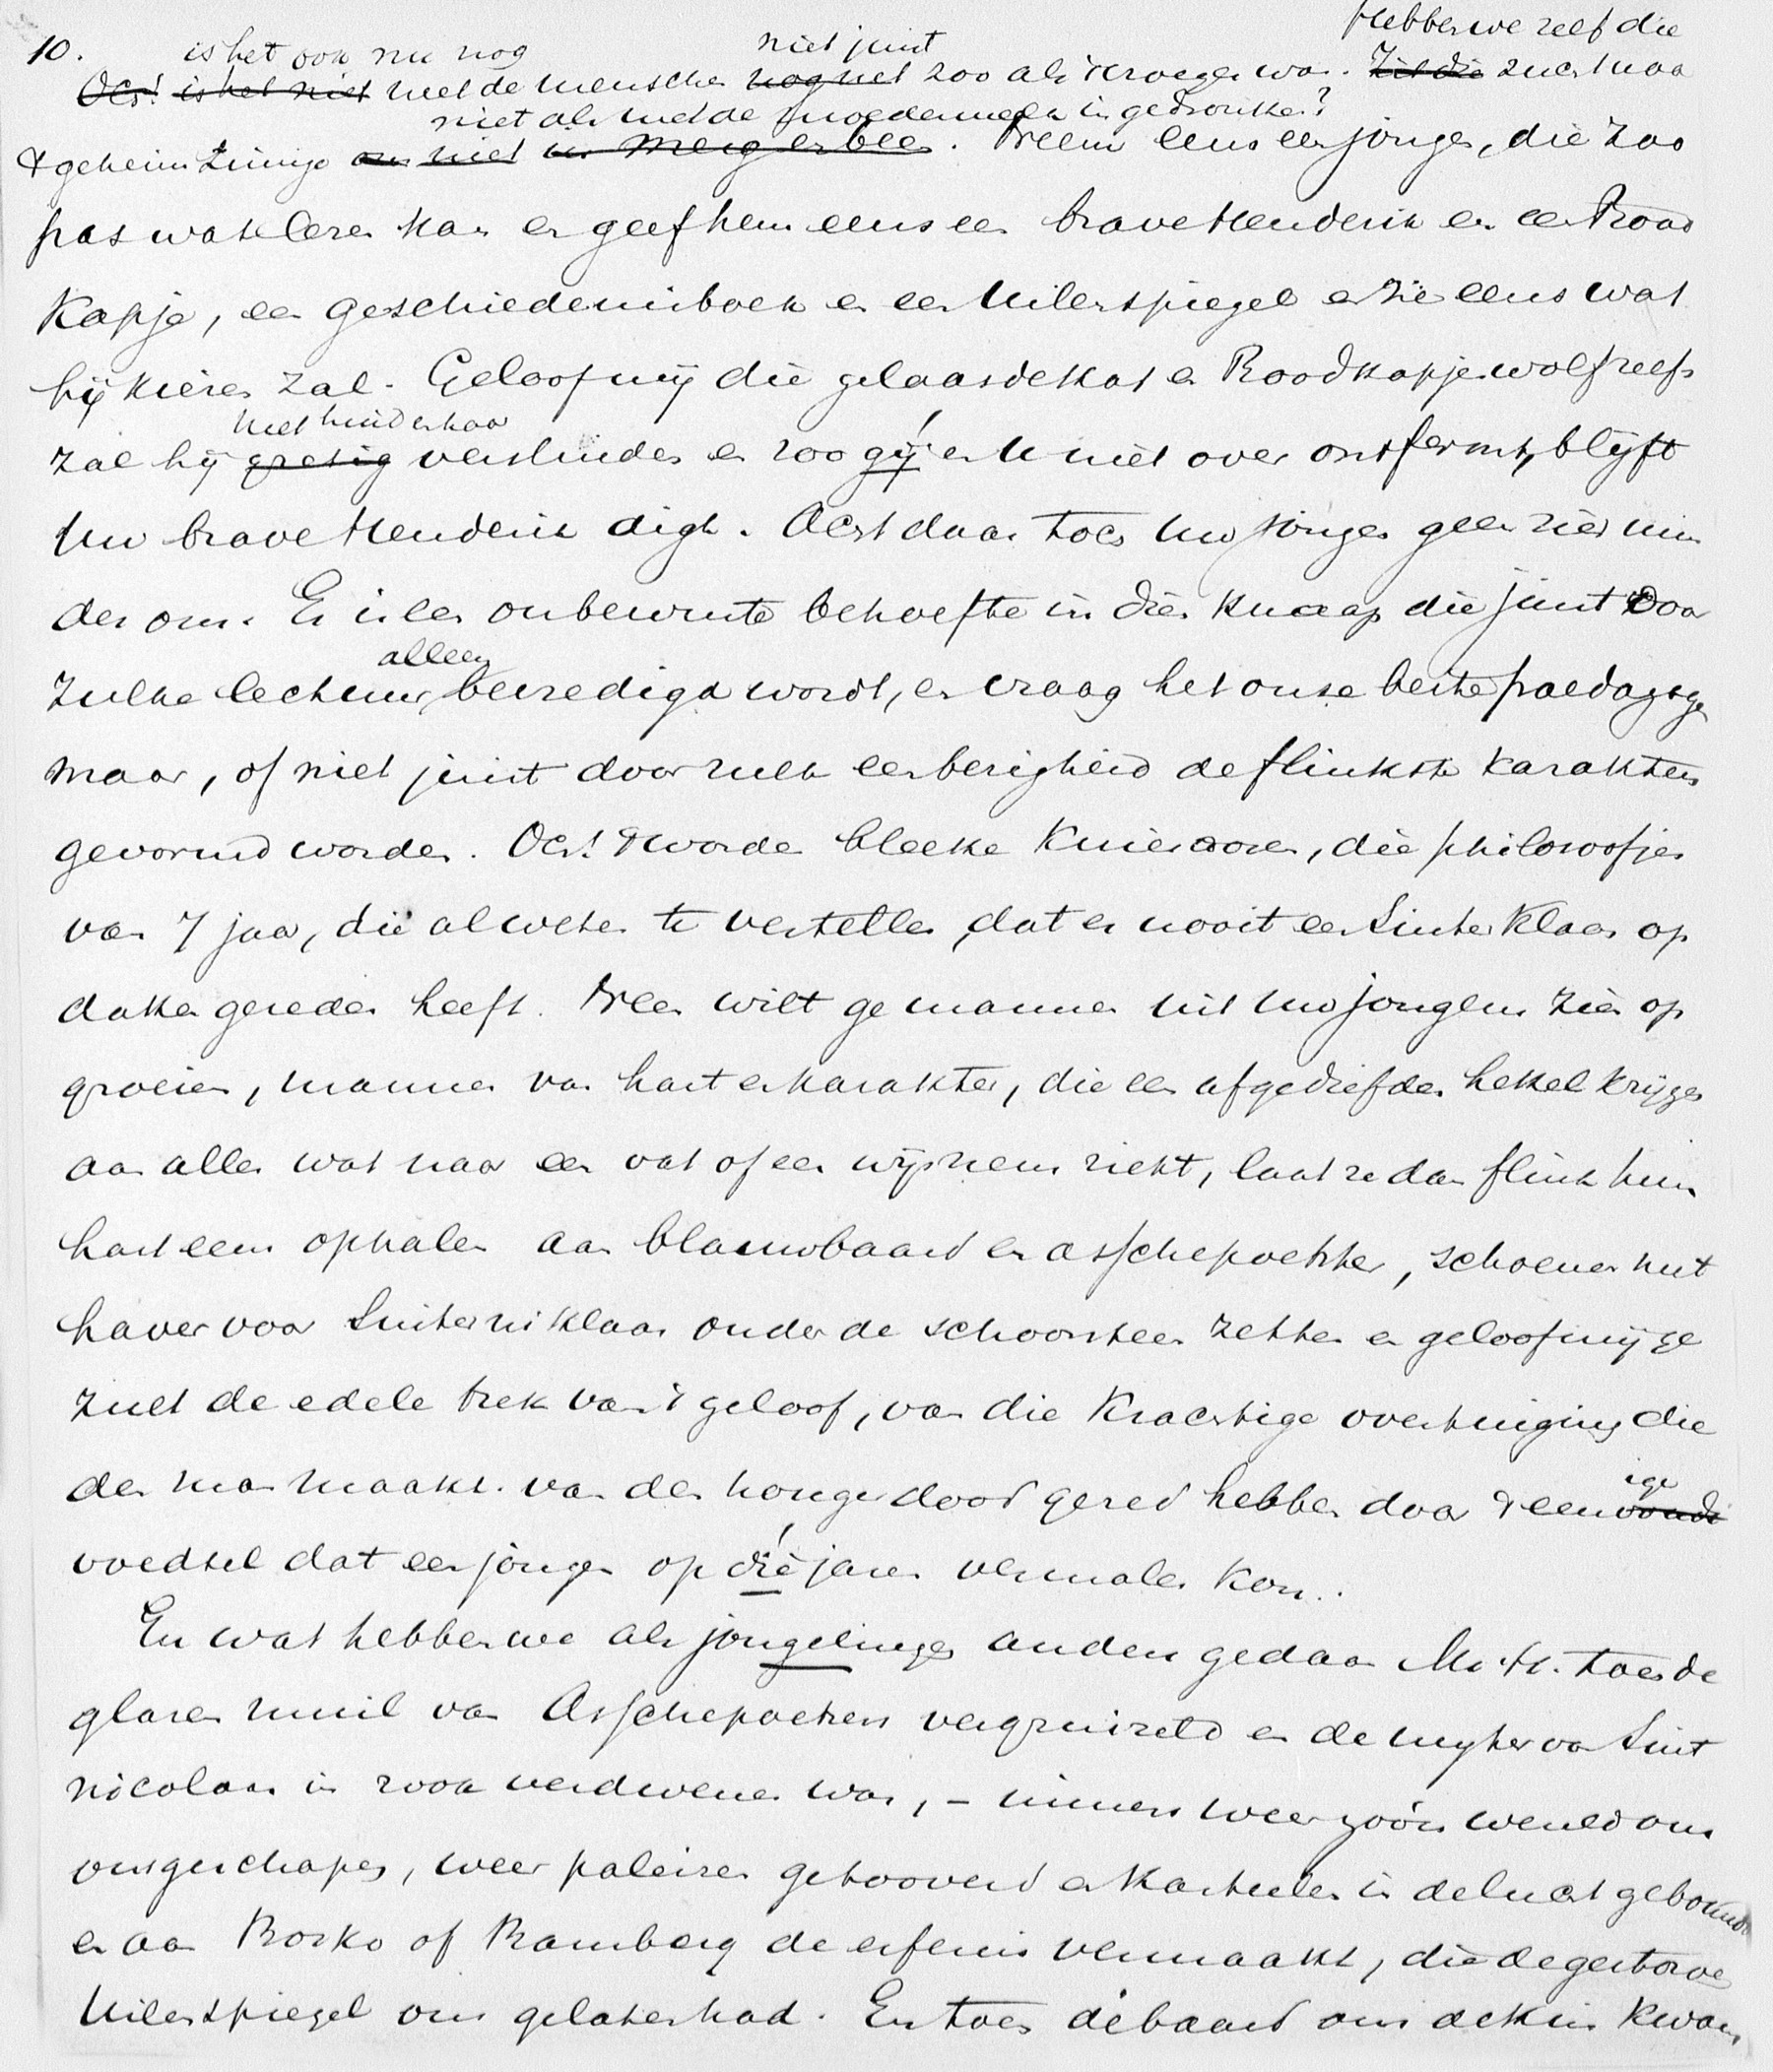 10.
is het ook nu nog niet juist Hebben we zelf die
Och! is het niet met de menschen nog net zoo als vroeger was. Zit die zucht naar
niet als met de moedermelk in gedronken?
't geheimzinnige ons niet in merg en been. Neem eens een jongen, die zoo
pas wat lezen kan en geef hem eens een brave Hendrik en een Rood
Kapje, een geschiedenisboek en een Uilenspiegel en zie eens wat
hij kiezen zal. Geloof mij die gelaarsde kat en Roodkapjes wolf reeds
met huid en haar
zal hij gretig verslinden en zoo gij er U niet over ontfermt, blijft
Uw brave Hendrik digt. Och daar toch Uw jongen geen zier min
der om. Er is een onbewuste behoefte in dien knaap die juist door
alleen
zulke lectuur, bevredigd wordt, en vraag het onze beste paedagogen
maar, of niet juist door zulk een bezigheid de flinkste karakters
gevormd worden. Och! 't worden bleeke kniesooren, die philosoofjes
van 7 jaar, die al weten te vertellen, dat er nooit een Sinter Klaas op
daken gereden heeft. Neen wilt ge mannen uit Uw jongens zien op
groeien, mannen van hart en karakter, die een afgedriefden hekel krijgen
aan alles wat naar een vat of een wijsneus riekt, laat ze dan flink hun
hart eens ophalen aan blaauwbaard en asschepoetster, schoenen met
haver voor Sinterniklaas onder de schoorsteen zetten en geloof mij ge
zult de edele trek van 't geloof, van die krachtige overtuiging die
den man maakt. van den hongerdood gered hebben door 't eenvoudi
ige
voedsel dat een jongen op dié jaren vermalen kon.
En wat hebben we als jongelingen anders gedaan M. H. toen de
glazen muil van Asschepoetsers vergruizeld en de mijter van Sint
Nicolaas in rook verdwenen was, – immers weer zóón wereld ons
omgeschapen, weer paleizen getooverd en kasteelen in de lucht gebouwd
en aan Bosko of Bamberg de erfenis vermaakt, die de gestorven
Uilenspiegel ons gelaten had. En toen de baard ons de kin kwam